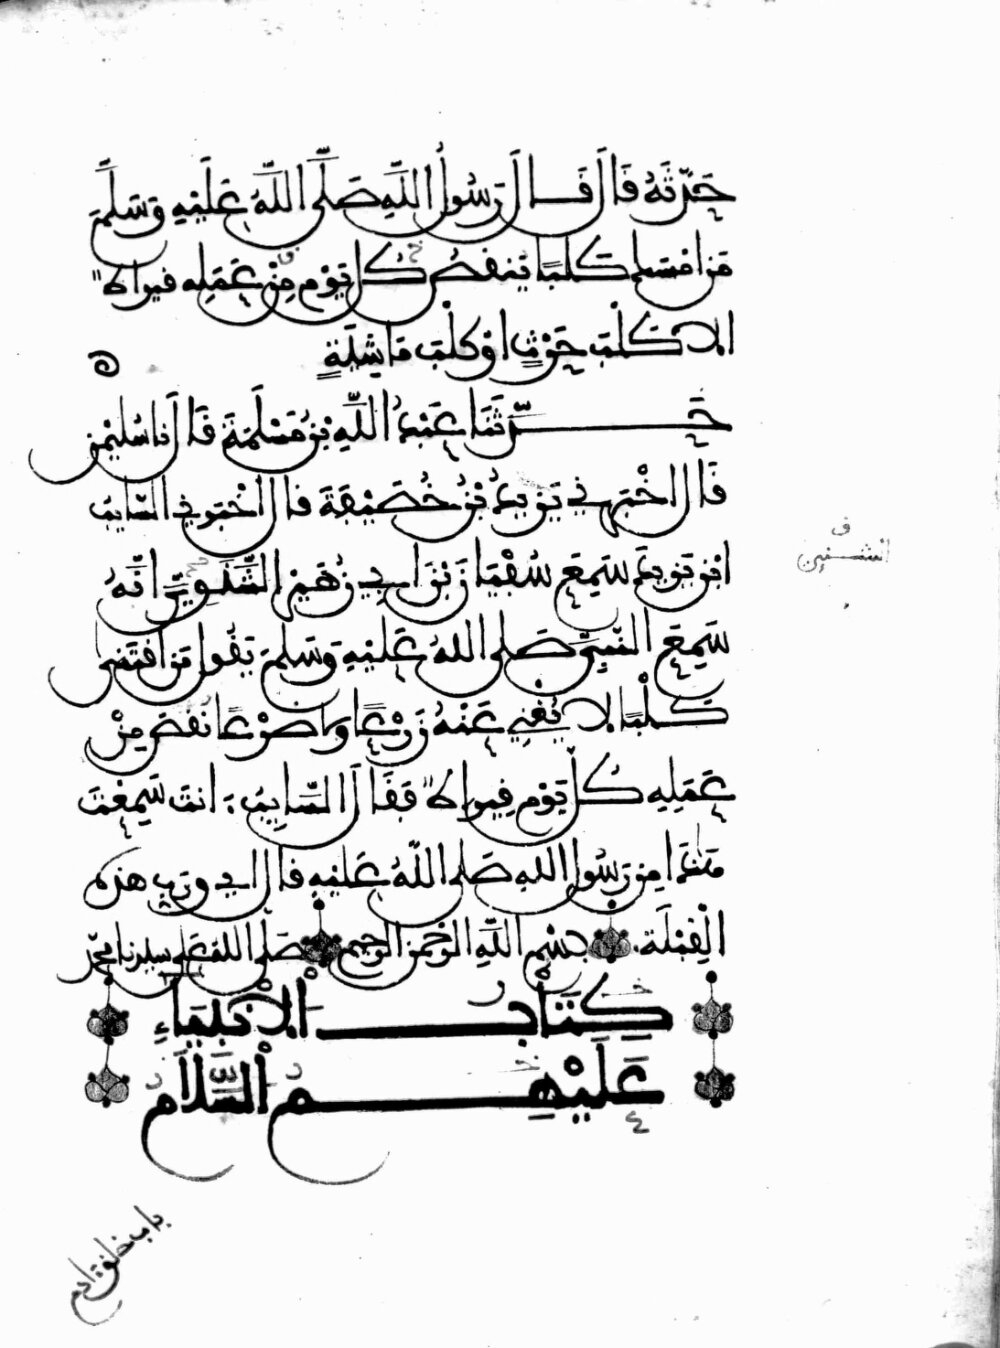 حَدَّثَهُ قَالَ قَالَ رَسُولُ اللَّهِ صَلَّى اللَّهُ عَلَيْهِ وَسَلَّمَ
مَنْ امْسَكَ كَلْبًا يَنْقُصُ كُلَّ يَوْمٍ مِنْ عَمَلِهِ قيراطٌ
الا كَلْبَ حَرْثٍ اوْ كَلْبَ مَاشِيَةٍ
حَدَّثَنَا عَبْدُ اللَّهِ بْنُ مَسْلَمَةَ قَالَ نا سُلَيْمٰن
قَالَ اخْبَرَنِي يَزِيدُ بْنُ خُصَيْفَةَ قال أخْبَرَنِي السَّايبُ
ابْنُ يَزِيدَ سَمِعَ سُفْيَانَ بْنَ أبِي زُهَيْرٍ الشَّنَوِيَّ انَّهُ
سَمِعَ النَّبِيَّ صَلى اللهُ عَلَيْهِ وَسَلمَ يَقُولُ مَنِ اقْتَنَى
كَلْبًا لا يُغْنِي عَنْهُ زَرْعًا ولا ضَرْعًا نَقَصَ مِنْ
عَمَلِهِ كُلَّ يَوْمٍ قِيرَاطٌ فَقَالَ السَّايِبُ انتَ سَمِعْتَ
هَذَا مِن رَسُولِ اللهِ صَلى اللَّهُ عَلَيْهِ قال اي وَرَبِّ هذه
الْقِبْلَةِ بِسْمِ اللَّهِ الرَّحْمٰنِ الرَّحِيمِ صَلَّى اللهُ عَلى سيدنا محمّد
كِتَابُ الانْبِيَاءِ
عَلَيْهِم السَّلَامُ
الشنِين
باب خلق ادم